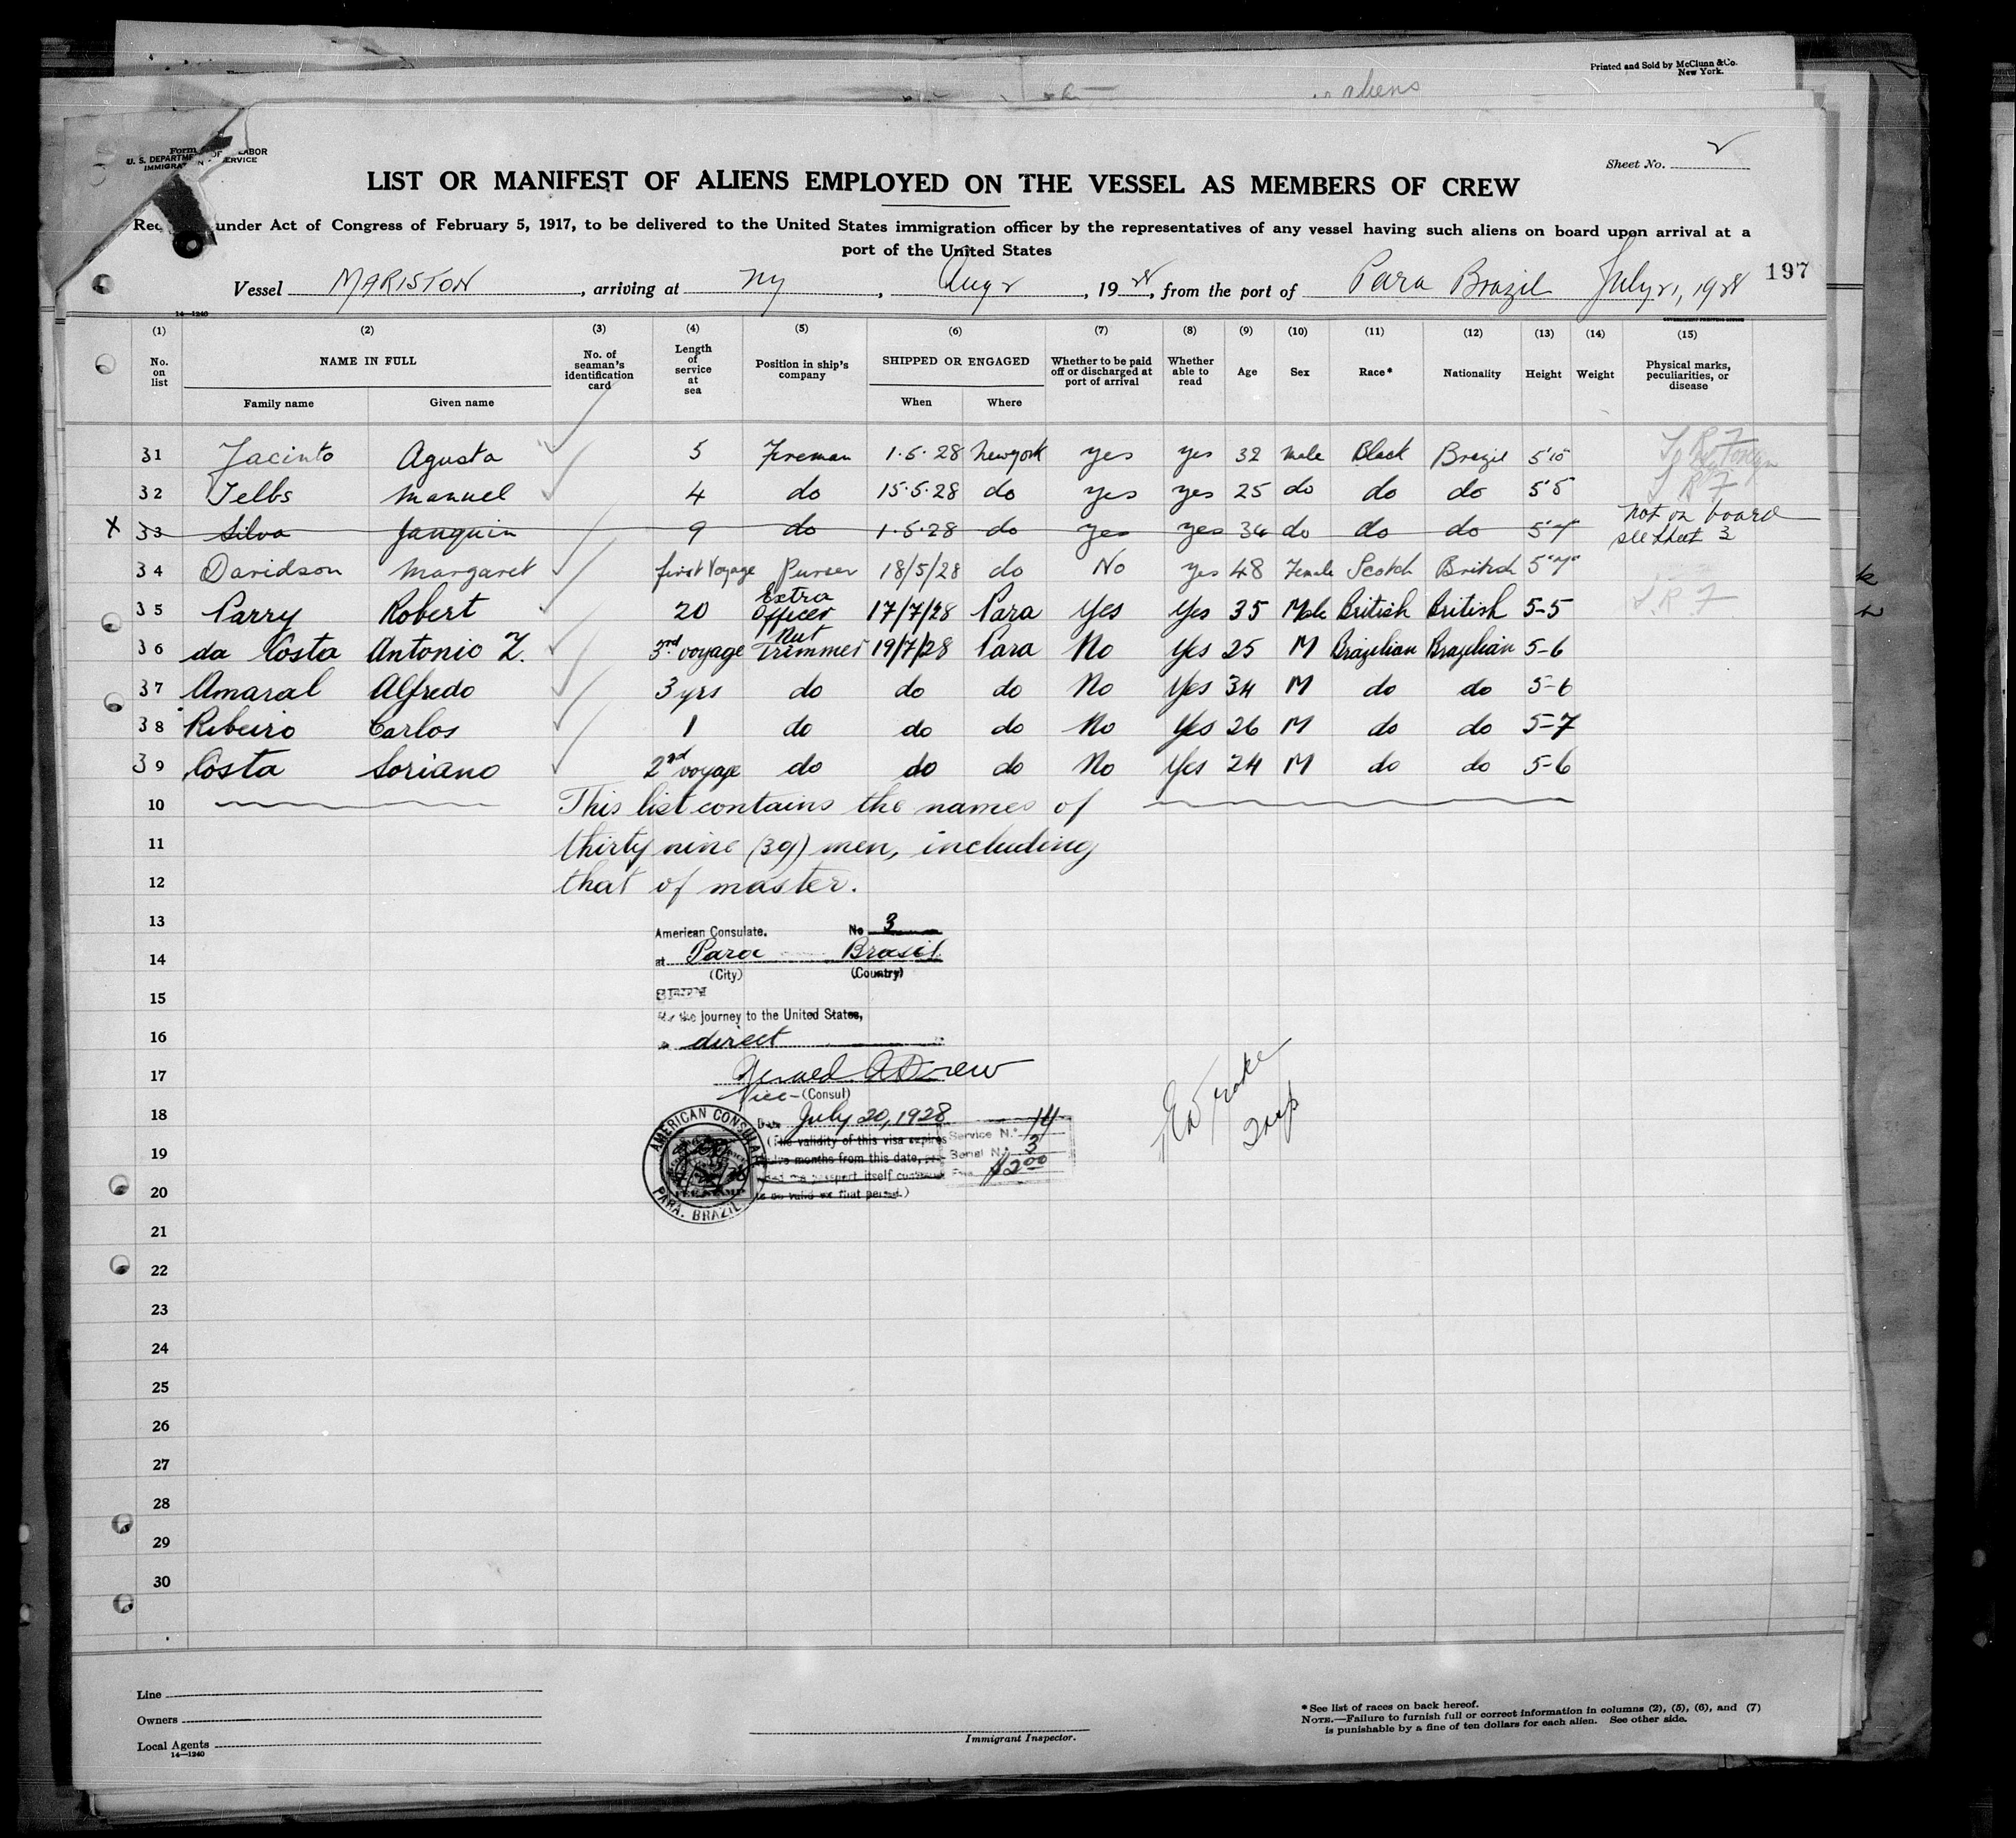 Printed and Sold by McClunn & Co.
New York.
aliens
Form
U. S. DEPARTMENT OF LABOR
IMMIGRATION SERVICE
Sheet No. 2
LIST OR MANIFEST OF ALIENS EMPLOYED ON THE VESSEL AS MEMBERS OF CREW
under Act of Congress of February 5, 1917, to be delivered to the United States immigration officer by the representatives of any vessel having such aliens on board upon arrival at a
port of the United States
197
Vessel MARISTON, arriving at ny, Aug 2, 1928, from the port of Para Brazil July 21, 1928
14—1240
(1) (2) (3) (4) (5) (6) (7) (8) (9) (10) (11) (12) (13) (14) (15)
No. on list NAME IN FULL Family name Given name No. of seaman's identification card Length of service at sea Position in ship's company SHIPPED OR ENGAGED When Where Whether to be paid off or discharged at port of arrival Whether able to read Age Sex Race* Nationality Height Weight Physical marks, peculiarities, or disease
31 Jacinto Agusta 5 Fireman 1.5.28 Newyork yes yes 32 male Black Brazil 5'10"
32 Telbs Manuel 4 do 15.5.28 do yes yes 25 do do do 5'5
X 33 Silva Janquin 9 do 1.5.28 do yes yes 34 do do do 5'7" not on board
see sheet 3
34 Davidson Margaret first Voyage Purser 18/5/28 do No yes 48 Female Scotch British 5'7"
35 Parry Robert 20 Extra Officer 17/7/28 Para Yes Yes 35 Male British British 5-5
36 da Costa Antonio Z. 3rd voyage Nut Trimmer 19/7/28 Para No Yes 25 M Brazilian Brazilian 5-6
37 Amaral Alfredo 3 yrs do do do No Yes 34 M do do 5-6
38 Ribeiro Carlos 1 do do do No Yes 26 M do do 5-7
39 Costa Soriano 2nd voyage do do do No Yes 24 M do do 5-6
10 This list contains the names of
11 thirty nine (39) men, including
12 that of master.
13 American Consulate. No 3
14 at Para Brasil
(City) (Country)
15 SEEN
For the journey to the United States,
16 direct
17 Gerald A Drew
Vice-(Consul)
18 Date July 20, 1928
(The validity of this visa expires
19 twelve months from this date,
the passport itself continues
20 to be valid for that period.)
Service No. 14
Serial No. 3
Fee $2.00
AMERICAN CONSULAR
PARA. BRAZIL
21
22
23
24
25
26
27
28
29
30
Line
Owners
Local Agents
14—1240
Immigrant Inspector.
*See list of races on back hereof.
NOTE.—Failure to furnish full or correct information in columns (2), (5), (6), and (7)
is punishable by a fine of ten dollars for each alien. See other side.